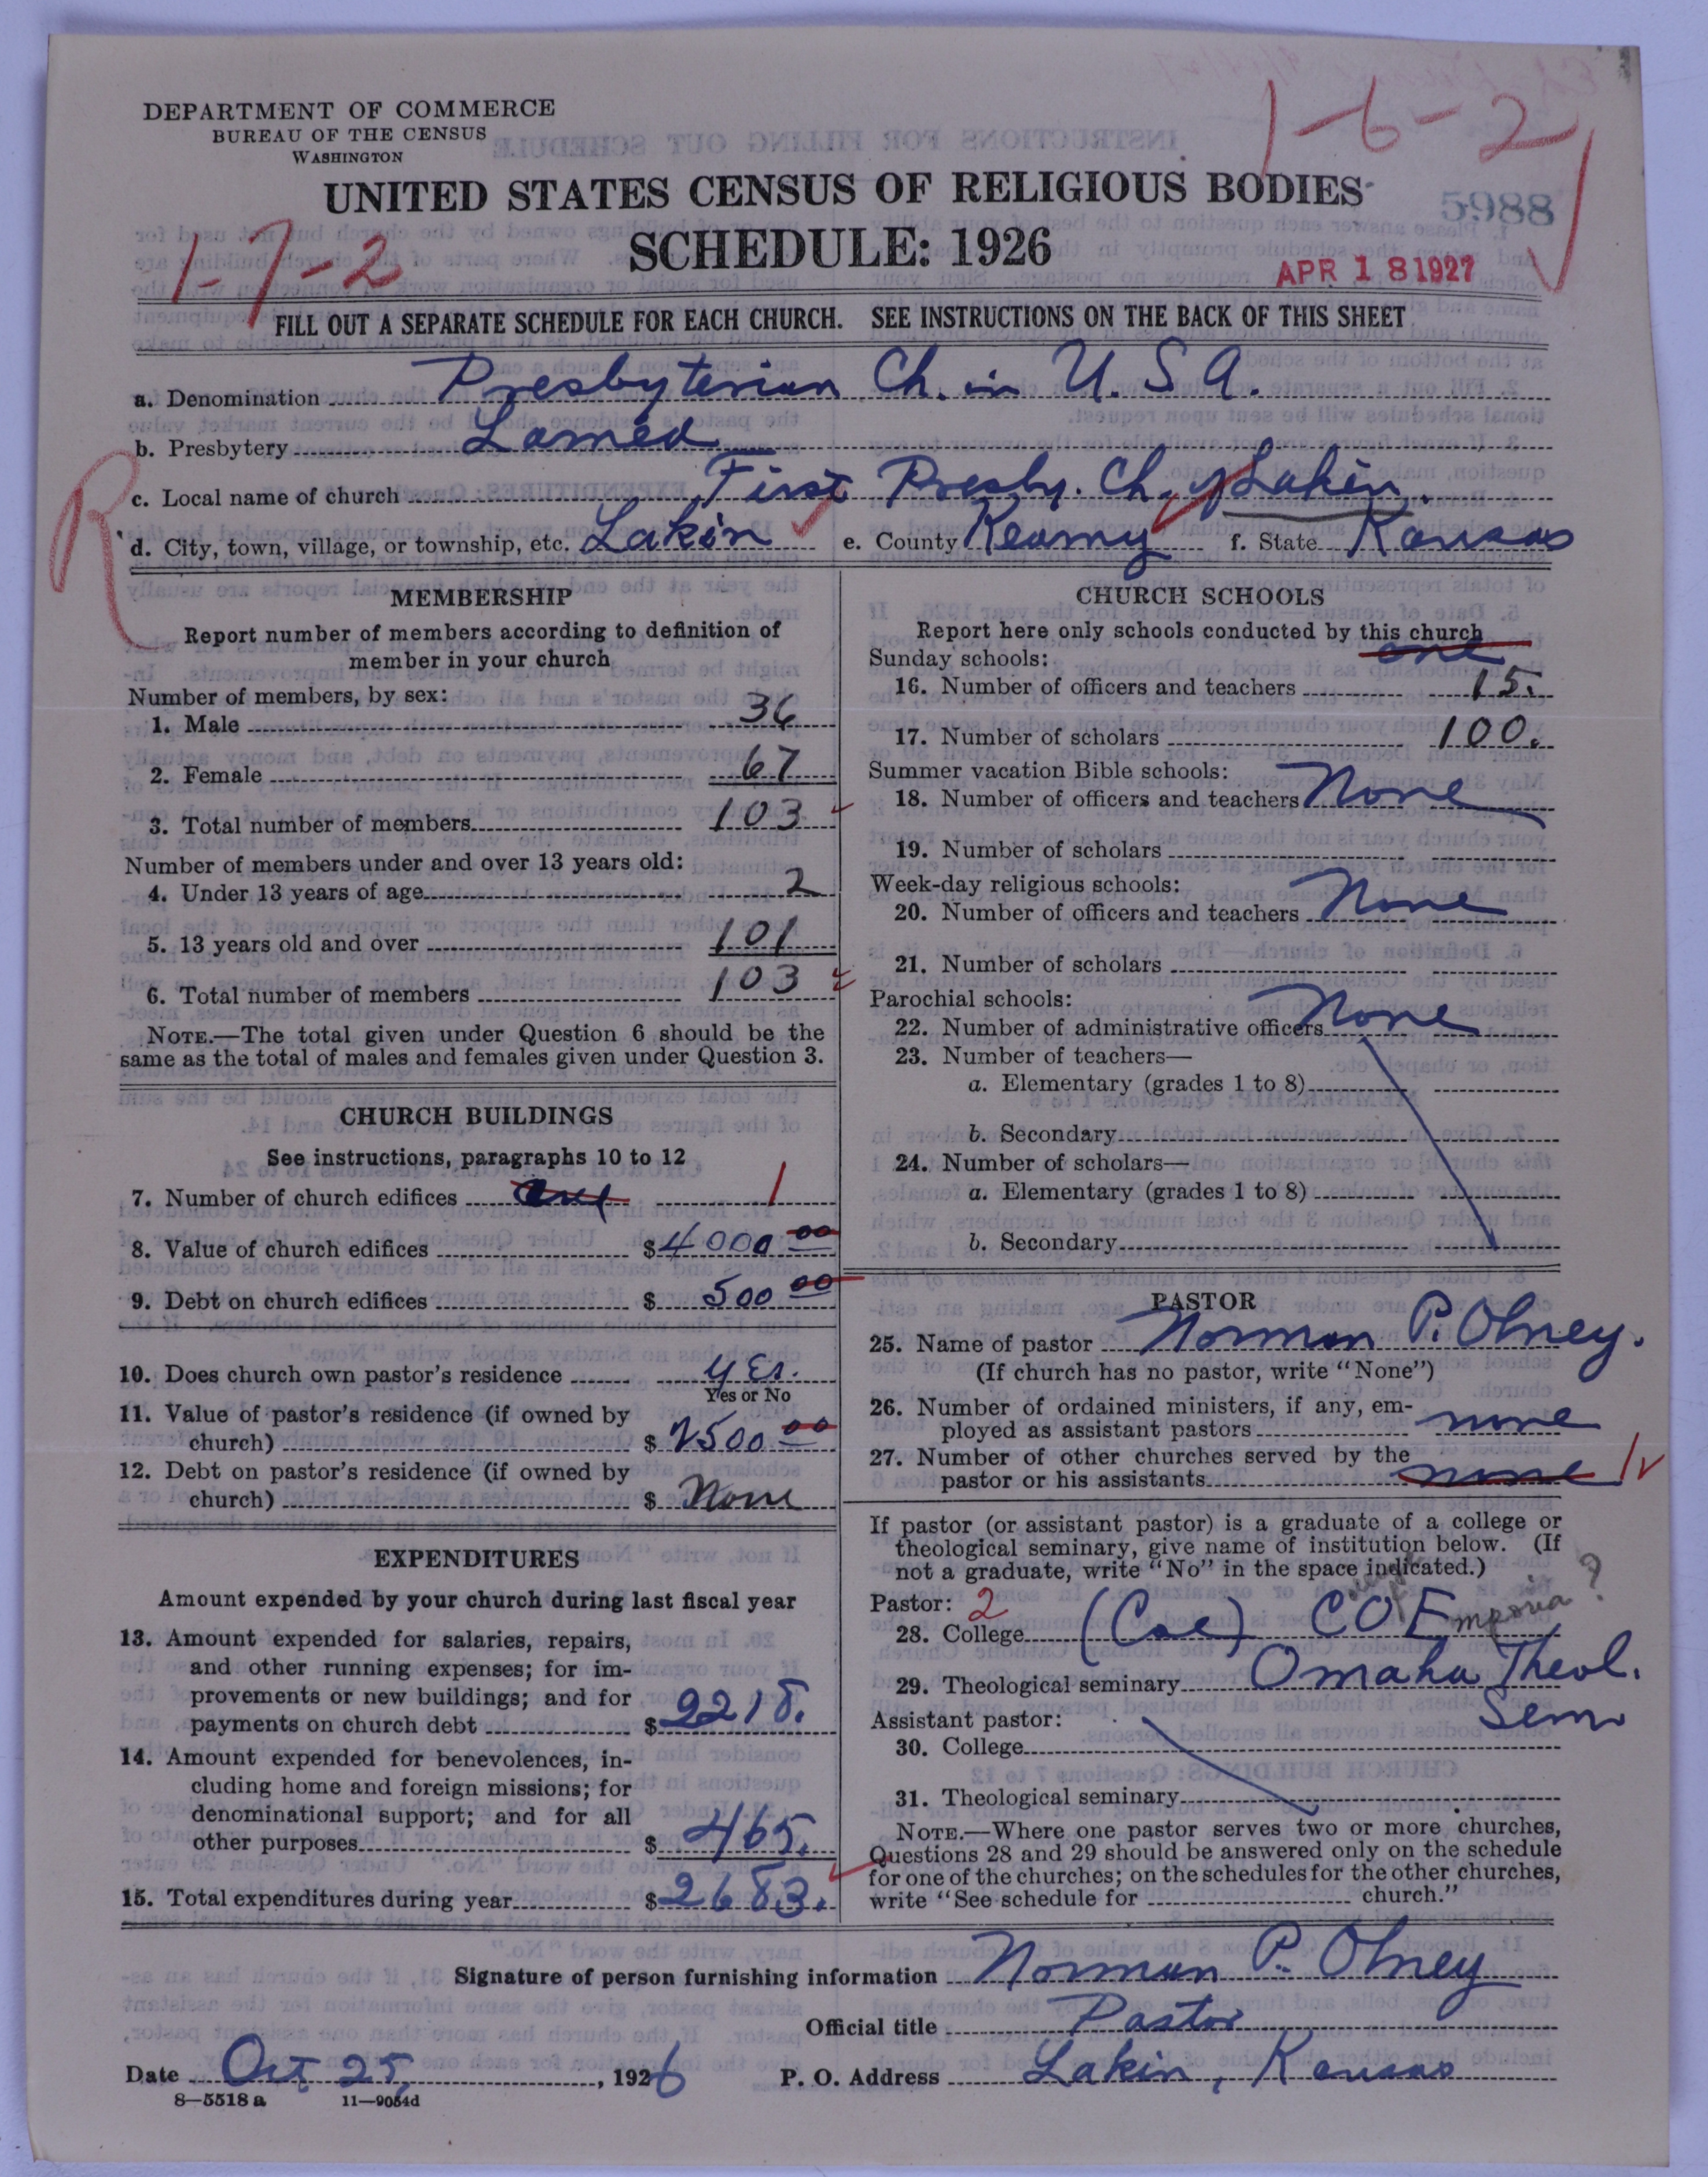 DEPARTMENT OF COMMERCE
BUREAU OF THE CENSUS
WASHINGTON
1-6-2
UNITED STATES CENSUS OF RELIGIOUS BODIES
5988
1-7-2
SCHEDULE: 1926
APR 18 1927
FILL OUT A SEPARATE SCHEDULE FOR EACH CHURCH. SEE INSTRUCTIONS ON THE BACK OF THIS SHEET
a. Denomination Presbyterian Ch. in U.S.A.
b. Presbytery Larned
c. Local name of church First Presby. Ch. of Lakin.
R
d. City, town, village, or township, etc. Lakin e. County Kearny f. State Kansas
MEMBERSHIP
Report number of members according to definition of
member in your church
Number of members, by sex:
1. Male 36
2. Female 67
3. Total number of members 103
Number of members under and over 13 years old:
4. Under 13 years of age 2
5. 13 years old and over 101
6. Total number of members 103
NOTE.—The total given under Question 6 should be the
same as the total of males and females given under Question 3.
CHURCH BUILDINGS
See instructions, paragraphs 10 to 12
7. Number of church edifices one 1
8. Value of church edifices $4000 00
9. Debt on church edifices $ 500 00
10. Does church own pastor's residence yes.
Yes or No
11. Value of pastor's residence (if owned by
church) $ 2500 00
12. Debt on pastor's residence (if owned by
church) $ None
EXPENDITURES
Amount expended by your church during last fiscal year
13. Amount expended for salaries, repairs,
and other running expenses; for im-
provements or new buildings; and for
payments on church debt $2218.
14. Amount expended for benevolences, in-
cluding home and foreign missions; for
denominational support; and for all
other purposes $ 465.
15. Total expenditures during year $2683.
CHURCH SCHOOLS
Report here only schools conducted by this church
Sunday schools: one
16. Number of officers and teachers 15.
17. Number of scholars 100.
Summer vacation Bible schools:
18. Number of officers and teachers None
19. Number of scholars
Week-day religious schools:
20. Number of officers and teachers None
21. Number of scholars
Parochial schools:
22. Number of administrative officers None
23. Number of teachers—
a. Elementary (grades 1 to 8)
b. Secondary
24. Number of scholars—
a. Elementary (grades 1 to 8)
b. Secondary
PASTOR
25. Name of pastor Norman P. Olney.
(If church has no pastor, write "None")
26. Number of ordained ministers, if any, em-
ployed as assistant pastors none
27. Number of other churches served by the
pastor or his assistants none 1
If pastor (or assistant pastor) is a graduate of a college or
theological seminary, give name of institution below. (If
not a graduate, write "No" in the space indicated.)
Pastor: 2
28. College (Coe) COE mporia ?
29. Theological seminary Omaha Theol.
Sem
Assistant pastor:
30. College
31. Theological seminary
NOTE.—Where one pastor serves two or more churches,
Questions 28 and 29 should be answered only on the schedule
for one of the churches; on the schedules for the other churches,
write "See schedule for church."
Signature of person furnishing information Norman P. Olney
Official title Pastor
Date Oct 25, 1926 P. O. Address Lakin, Kansas
8—5518 a 11—9054d